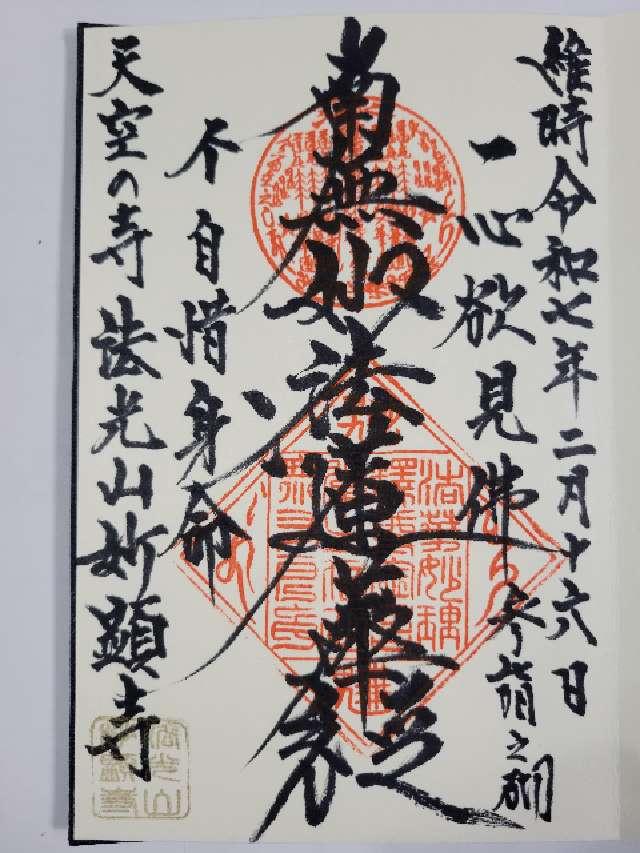 維時令和七年二月十六日
参詣之砌
一心欲見佛
南無妙法蓮華経
不自惜身命
天空の寺 法光山妙顕寺